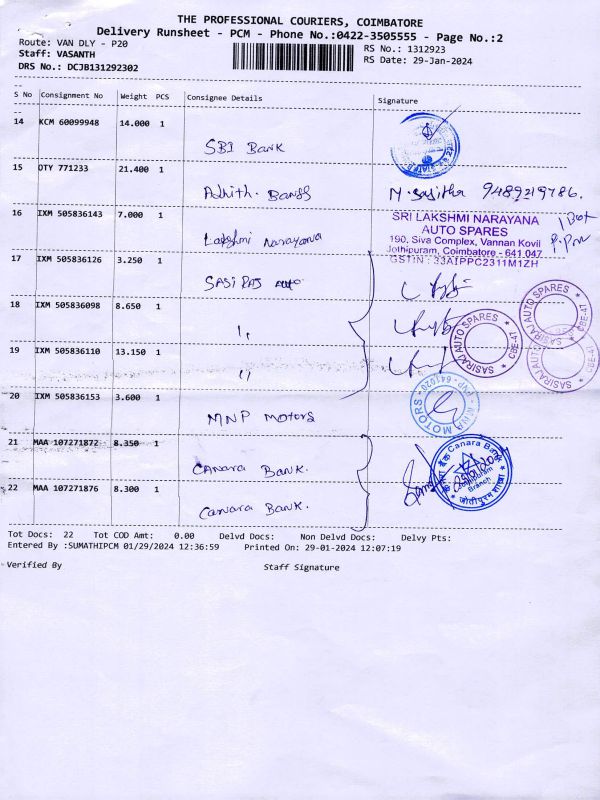 THE PROFESSIONAL COURIERS, COIMBATORE
Delivery Runsheet - PCM - Phone No.:0422-3505555 - Page No.:2
Route: VAN DLY - P20
RS No.: 1312923
Staff: VASANTH
RS Date: 29-Jan-2024
DRS No.: DCJB131292302
S No Consignment No Weight PCS Consignee Details Signature
14 KCM 60099948 14.000 1
SBI Bank
15 OTY 771233 21.400 1
Adhith.
N. Sasitha 9489219786.
16 IXM 505836143 7.000 1
Lakshmi Narayana
SRI LAKSHMI NARAYANA
AUTO SPARES
190, Siva Complex, Vannan Kovil
Jothipuram, Coimbatore - 641 047
GSTIN : 33AIPPC2311M1ZH
1 Box
17 IXM 505836126 3.250 1
SASIRAJ Auto
18 IXM 505836098 8.650 1
"
SASIRAJ AUTO SPARES ★ CBE-47 ★
SASIRAJ AUTO SPARES ★ CBE-47 ★
SASIRAJ AUTO SPARES ★ CBE-47
19 IXM 505836110 13.150 1
"
20 IXM 505836153 3.600 1
MNP Motors
MOTORS ★ PNP - 641020 ★
21 MAA 107271872 8.350 1
Canara Bank.
Canara Bank
Branch
22 MAA 107271876 8.300 1
Canara Bank.
Tot Docs: 22 Tot COD Amt: 0.00 Delvd Docs: Non Delvd Docs: Delvy Pts:
Entered By :SUMATHIPCM 01/29/2024 12:36:59 Printed On: 29-01-2024 12:07:19
Verified By Staff Signature